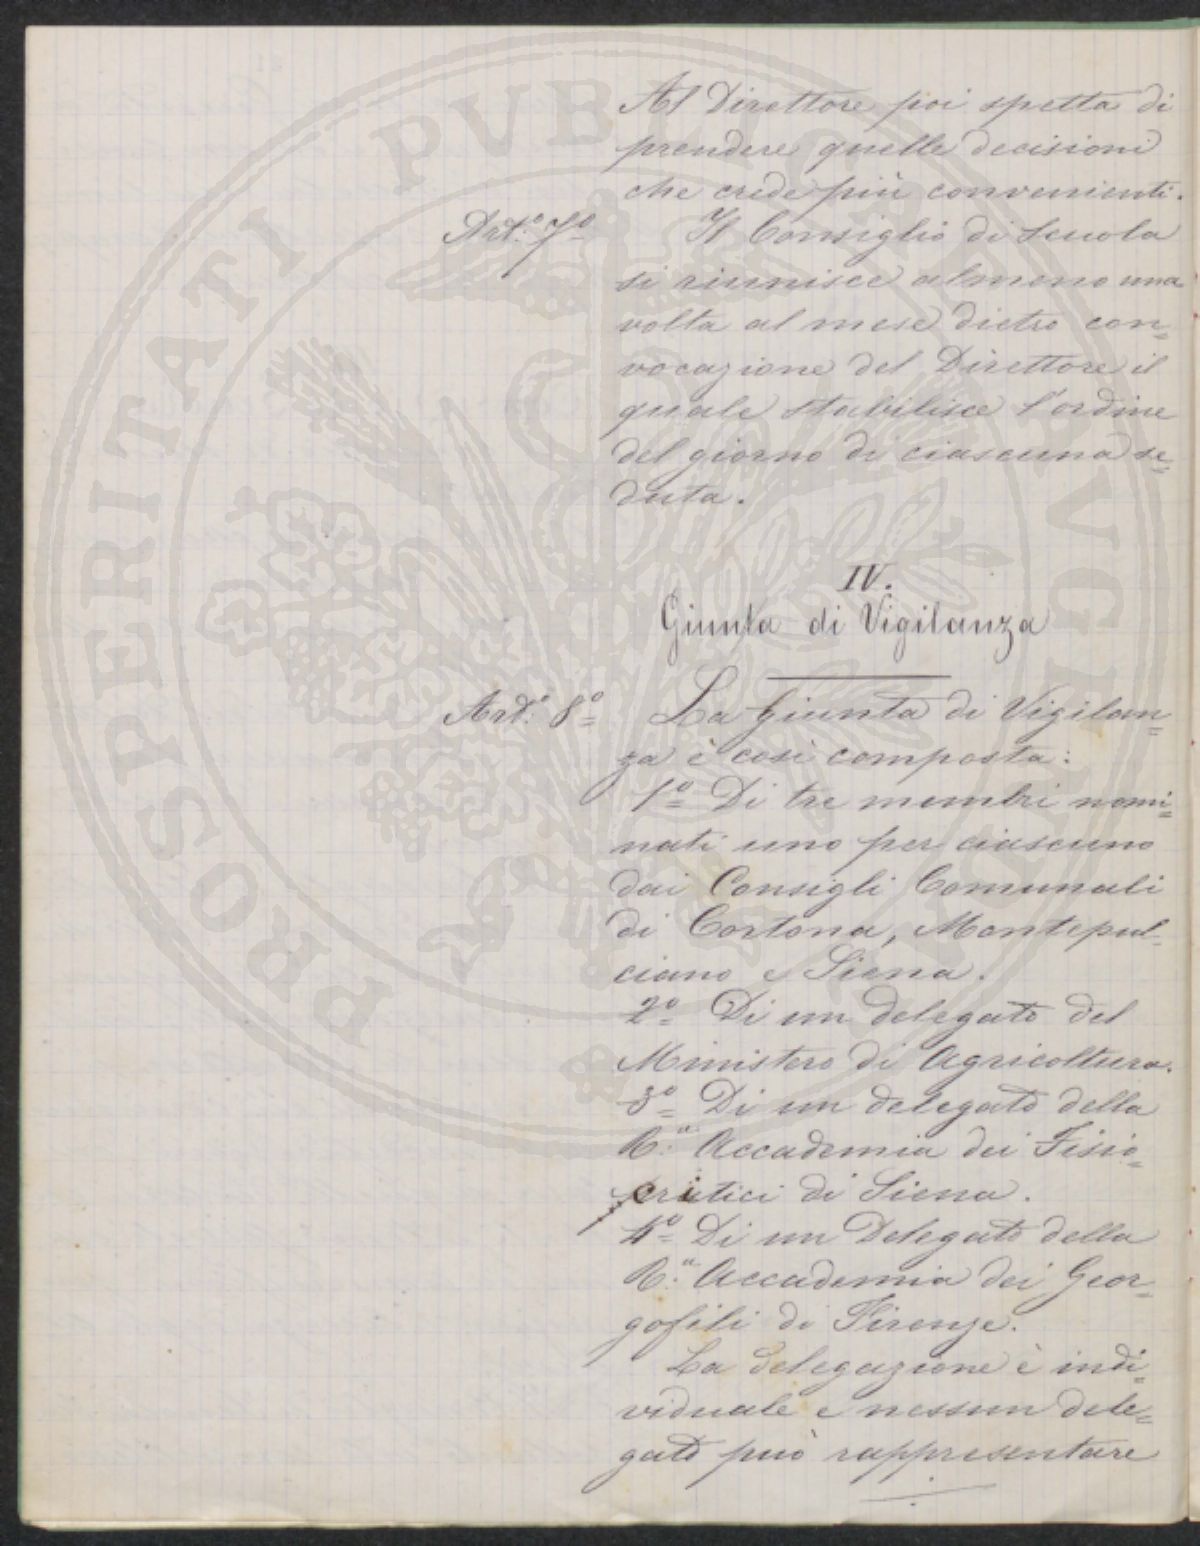 Al Direttore poi spetta di
prendere quelle decisioni
che crede più convenienti.
Art.º 7º Il Consiglio di Scuola
si riunisce almeno una
volta al mese dietro con=
vocazione del Direttore il
quale stabilisce l'ordine
del giorno di ciascuna se=
duta.
IV.
Giunta di Vigilanza
Art.º 8º La Giunta di Vigilan=
za è così composta:
1º Di tre membri nomi=
nati uno per ciascuno
dai Consigli Comunali
di Cortona, Montepul=
ciano e Siena.
2º Di un delegato del
Ministero di Agricoltura.
3º Di un delegato della
R.ª Accademia dei Fisio=
critici di Siena.
4º Di un Delegato della
R.ª Accademia dei Geor=
gofili di Firenze.
La delegazione è indi=
viduale e nessun dele=
gato può rappresentare
PROSPERITATI PUBLICAE AUGENDAE